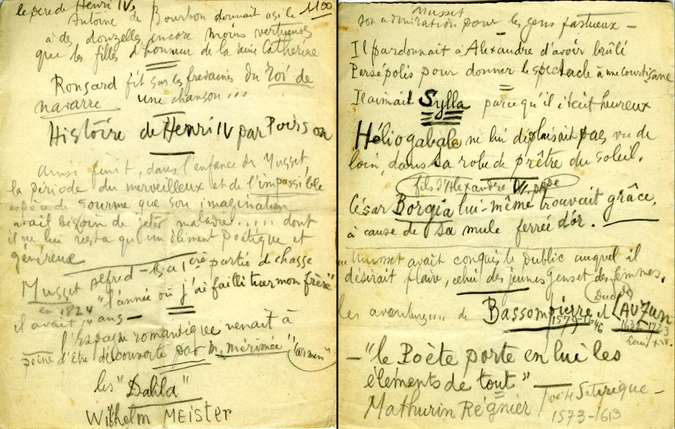 le père de Henri IV, 1100
Antoine de Bourbon donnait asile
à des donzelles encore moins vertueuses
que les filles d'honneur de la reine Catherine
Ronsard fit sur les fredaines du Roi de
navarre une chanson...
Histoire de Henri IV par Poirson
Ainsi finit, dans l'enfance de Musset
la période du merveilleux et de l'impossible
espèce de gourme que son imagination
avait besoin de jeter maladive..... dont
il ne lui resta qu'un élément Poétique et
généreux
Musset alfred - sa 1ère partie de chasse
en 1824 "l'année où j'ai failli tuer mon frère"
il avait 14 ans -
l'Espagne romantique venait à
peine d'être découverte par m. mérimée "Carmen"
les "Dahla"
Wilhelm Meister
Musset
son admiration pour les gens fastueux -
Il pardonnait à Alexandre d'avoir brûlé
Persépolis pour donner le spectacle à une courtisane
Il aimait Sylla parce qu'il était heureux
Héliogabale ne lui déplaisait pas vu de
loin, dans sa robe de prêtre du soleil.
fils d'Alexandre VI, pape
César Borgia lui-même trouvait grâce,
à cause de sa mule ferrée d'or.
Musset avait conquis le public auquel il
désirait plaire, celui des jeunes gens et des femmes.
Duc de
Les aventures de Bassompierre et LAUZUN
1579-1646 1632-1723
Louis XIV.
- "le Poète porte en lui les
éléments de tout"
Mathurin Régnier Poète Satirique -
1573-1613